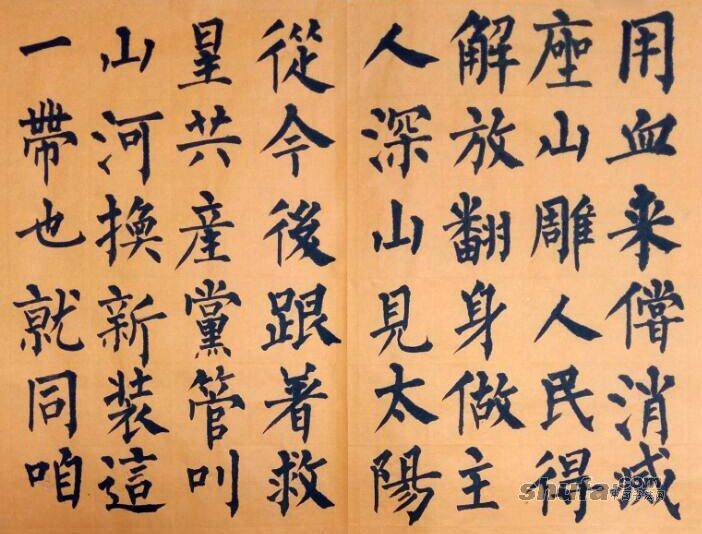 用血来償消滅
座山雕人民得
解放翻身做主
人深山見太陽
從今後跟著救
星共産黨管叫
山河換新装這
一帶也就同咱